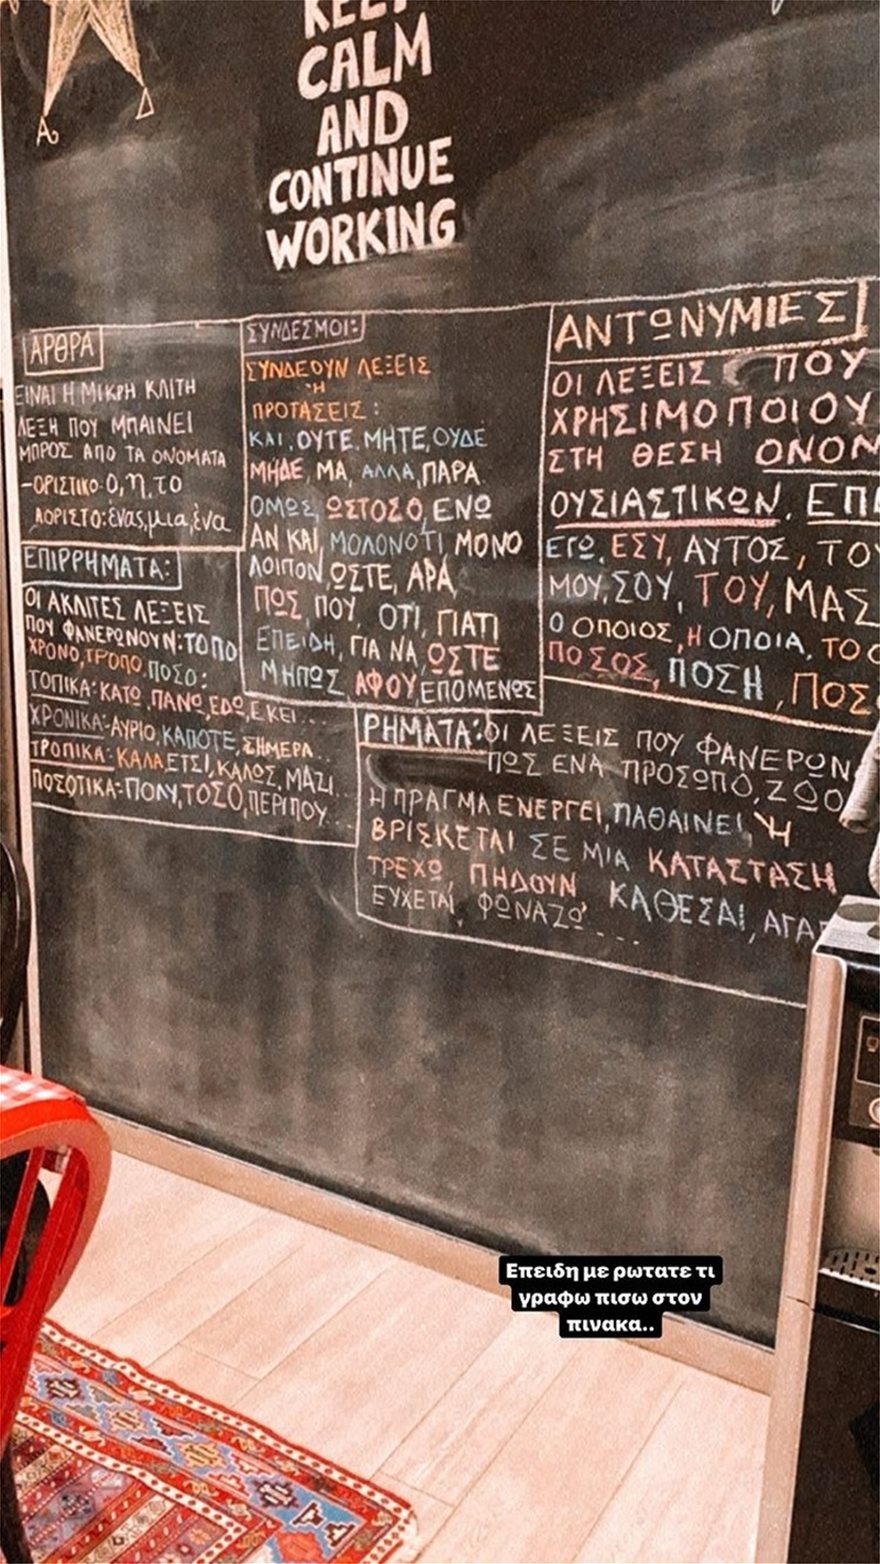 KEEP
CALM
AND
CONTINUE
WORKING
ΑΡΘΡΑ
ΕΙΝΑΙ Η ΜΙΚΡΗ ΚΛΙΤΗ
ΛΕΞΗ ΠΟΥ ΜΠΑΙΝΕΙ
ΜΠΡΟΣ ΑΠΟ ΤΑ ΟΝΟΜΑΤΑ
-ΟΡΙΣΤΙΚΟ: Ο, η, το
ΑΟΡΙΣΤΟ: ένας, μια, ένα
ΕΠΙΡΡΗΜΑΤΑ:
ΟΙ ΑΚΛΙΤΕΣ ΛΕΞΕΙΣ
ΠΟΥ ΦΑΝΕΡΩΝΟΥΝ: ΤΟΠΟ
ΧΡΟΝΟ, ΤΡΟΠΟ, ΠΟΣΟ:
ΤΟΠΙΚΑ: ΚΑΤΩ, ΠΑΝΩ, ΕΔΩ, ΕΚΕΙ...
ΧΡΟΝΙΚΑ: ΑΥΡΙΟ, ΚΑΠΟΤΕ, ΣΗΜΕΡΑ..
ΤΡΟΠΙΚΑ: ΚΑΛΑ, ΕΤΣΙ, ΚΑΛΩΣ, ΜΑΖΙ...
ΠΟΣΟΤΙΚΑ: ΠΟΛΥ, ΤΟΣΟ, ΠΕΡΙΠΟΥ...
ΣΥΝΔΕΣΜΟΙ:
ΣΥΝΔΕΟΥΝ ΛΕΞΕΙΣ
Ή
ΠΡΟΤΑΣΕΙΣ:
ΚΑΙ, ΟΥΤΕ, ΜΗΤΕ, ΟΥΔΕ
ΜΗΔΕ, ΜΑ, ΑΛΛΑ, ΠΑΡΑ
ΟΜΩΣ, ΩΣΤΟΣΟ, ΕΝΩ
ΑΝ ΚΑΙ, ΜΟΛΟΝΟΤΙ ΜΟΝΟ
ΛΟΙΠΟΝ, ΩΣΤΕ, ΑΡΑ,
ΠΩΣ, ΠΟΥ, ΟΤΙ, ΓΙΑΤΙ
ΕΠΕΙΔΗ, ΓΙΑ ΝΑ, ΩΣΤΕ
ΜΗΠΩΣ, ΑΦΟΥ, ΕΠΟΜΕΝΩΣ
ΑΝΤΩΝΥΜΙΕΣ
ΟΙ ΛΕΞΕΙΣ ΠΟΥ
ΧΡΗΣΙΜΟΠΟΙΟΥ
ΣΤΗ ΘΕΣΗ ΟΝΟΜ
ΟΥΣΙΑΣΤΙΚΩΝ, ΕΠΙ
ΕΓΩ, ΕΣΥ, ΑΥΤΟΣ, ΤΟΥ
ΜΟΥ, ΣΟΥ, ΤΟΥ, ΜΑΣ
Ο ΟΠΟΙΟΣ, Η ΟΠΟΙΑ, ΤΟ Ο
ΠΟΣΟΣ, ΠΟΣΗ, ΠΟΣ
ΡΗΜΑΤΑ: ΟΙ ΛΕΞΕΙΣ ΠΟΥ ΦΑΝΕΡΩΝ
ΠΩΣ ΕΝΑ ΠΡΟΣΩΠΟ, ΖΩΟ
Η ΠΡΑΓΜΑ ΕΝΕΡΓΕΙ, ΠΑΘΑΙΝΕΙ Ή
ΒΡΙΣΚΕΤΑΙ ΣΕ ΜΙΑ ΚΑΤΑΣΤΑΣΗ
ΤΡΕΧΩ ΠΗΔΟΥΝ ΚΑΘΕΣΑΙ, ΑΓΑΠ
ΕΥΧΕΤΑΙ, ΦΩΝΑΖΩ ....
Επειδη με ρωτατε τι
γραφω πισω στον
πινακα..